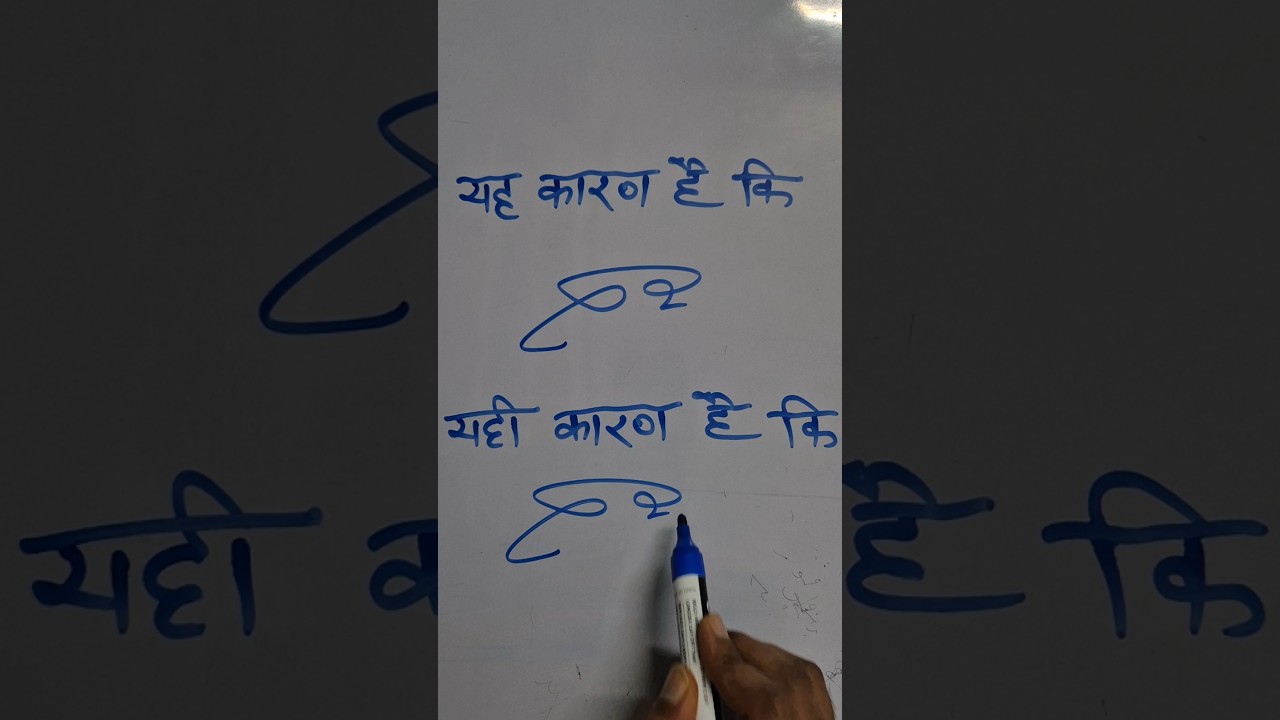 यह कारण है कि
यही कारण है कि